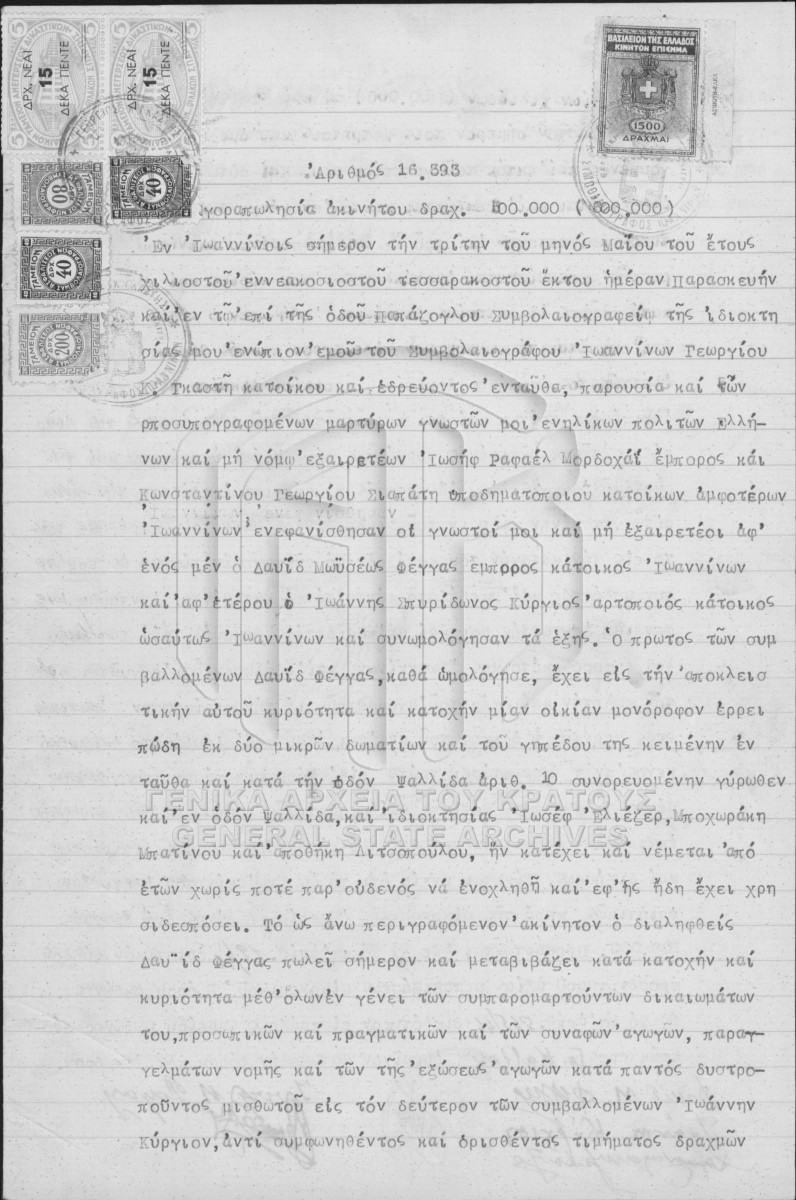 ΔΡΧ. ΝΕΑΙ 15 ΔΕΚΑ ΠΕΝΤΕ
ΔΡΧ. ΝΕΑΙ 15 ΔΕΚΑ ΠΕΝΤΕ
ΒΑΣΙΛΕΙΟΝ ΤΗΣ ΕΛΛΑΔΟΣ
ΚΙΝΗΤΟΝ ΕΠΙΣΗΜΑ
1500
ΔΡΑΧΜΑΙ
ΤΑΜΕΙΟΝ
80
ΤΑΜΕΙΟΝ
40
ΤΑΜΕΙΟΝ
ΔΡΧ
40
ΤΑΜΕΙΟΝ
ΔΡΧ
200
Ἀριθμός 16.393
γοραπωλησία ἀκινήτου δραχ. 00.000 ( 00.000)
Ἐν Ἰωαννίνοις σήμερον τήν τρίτην τοῦ μηνός Μαΐου τοῦ ἔτους
χιλιοστοῦ ἐννεακοσιοστοῦ τεσσαρακοστοῦ ἕκτου ἡμέραν Παρασκευήν
καί ἐν τῷ ἐπί τῆς ὁδοῦ Παπάζογλου Συμβολαιογραφείῳ τῆς ἰδιοκτη
σίας μου ἐνώπιον ἐμοῦ τοῦ Συμβολαιογράφου Ἰωαννίνων Γεωργίου
Κ. Γκαστῆ κατοίκου καί ἑδρεύοντος ἐνταῦθα, παρουσία καί τῶν
ρποσυπογραφομένων μαρτύρων γνωστῶν μοι ἐνηλίκων πολιτῶν Ελλή-
νων καί μή νόμῳ ἐξαιρετέων Ἰωσήφ Ραφαέλ Μορδοχάϊ ἔμπορος κάι
Κωνσταντίνου Γεωργίου Σιαπάτη ὑποδηματοποιοῦ κατοίκων ἀμφοτέρων
Ἰωαννίνων ἐνεφανίσθησαν οἱ γνωστοί μοι καί μή ἐξαιρετέοι ἀφ'
ἑνός μέν ὁ Δαυΐδ Μωϋσέως Φέγγας ἔμπρρος κάτοικος Ἰωαννίνων
καί ἀφ' ἑτέρου ὁ Ἰωάννης Σπυρίδωνος Κύργιος ἀρτοποιός κάτοικος
ὡσαύτως Ἰωαννίνων καί συνωμολόγησαν τά ἑξῆς. Ὁ πρωτος τῶν συμ
βαλλομένων Δαυΐδ Φέγγας, καθά ὡμολόγησε, ἔχει εἰς τήν ἀποκλεισ
τικήν αὐτοῦ κυριότητα καί κατοχήν μίαν οἰκίαν μονόροφον ἐρρει
πώδη ἐκ δύο μικρῶν δωματίων καί τοῦ γηπέδου της κειμένην ἐν
ταῦθα καί κατά τήν ὁδόν Ψαλλίδα ἀριθ. 10 συνορευομένην γύρωθεν
καί ἐν ὁδόν Ψαλλίδα, καί ἰδιοκτησίας Ἰωσέφ Ἐλιέζερ, Μποχωράκη
Μπατίνου καί ἀποθήκη Λιτσοπούλου, ἥν κατέχει καί νέμεται ἀπό
ἐτῶν χωρίς ποτέ παρ' οὐδενός νά ἐνοχληθῇ καί ἐφ' ἧς ἤδη ἔχει χρη
σιδεσπόσει. Τό ὡς ἄνω περιγραφόμενον ἀκίνητον ὁ διαληφθείς
Δαυΐδ Φέγγας πωλεῖ σήμερον καί μεταβιβάζει κατά κατοχήν καί
κυριότητα μέθ' ὅλωνἐν γένει τῶν συμπαρομαρτούντων δικαιωμάτων
του, προσωπικῶν καί πραγματικῶν καί τῶν συναφῶν ἀγωγῶν, παραγ-
γελμάτων νομῆς καί τῶν τῆς ἐξώσεως ἀγωγῶν κατά παντός δυστρο-
ποῦντος μισθωτοῦ εἰς τόν δεύτερον τῶν συμβαλλομένων Ἰωάννην
Κύργιον, ἀντί συμφωνηθέντος καί ὁρισθέντος τιμήματος δραχμῶν
ΓΕΝΙΚΑ ΑΡΧΕΙΑ ΤΟΥ ΚΡΑΤΟΥΣ
GENERAL STATE ARCHIVES